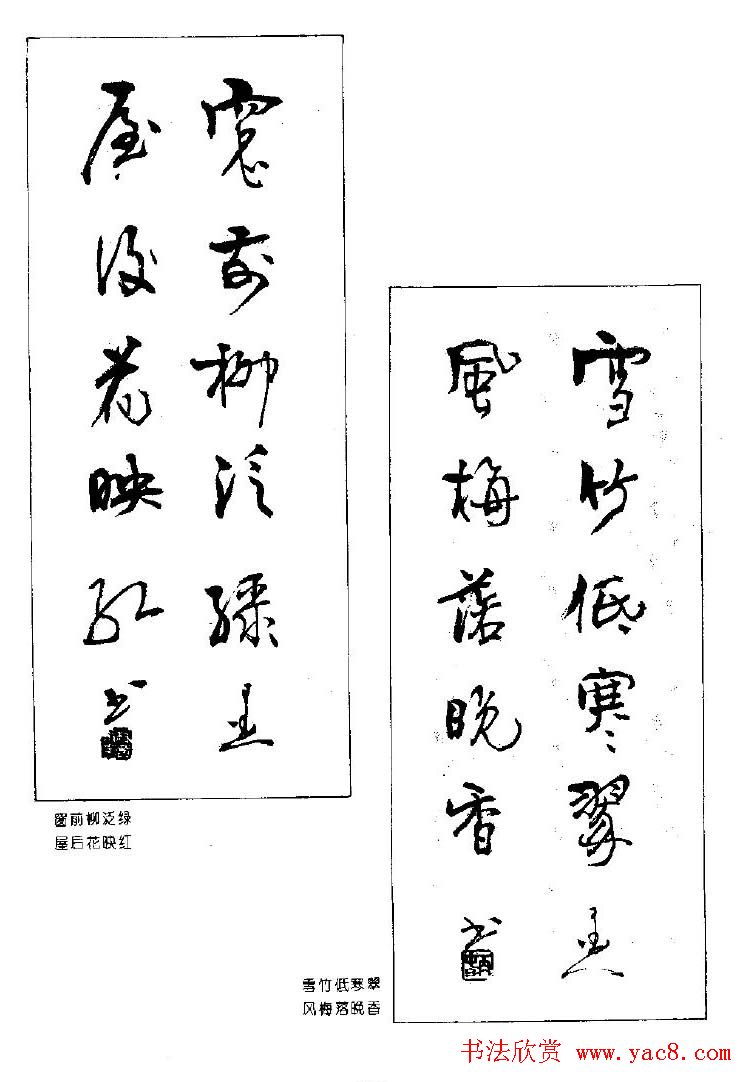 窗前柳泛綠
屋後花映紅
窗前柳泛绿
屋后花映红
雪竹低寒翠
風梅落晚香
雪竹低寒翠
风梅落晚香
书法欣赏 www.yac8.com